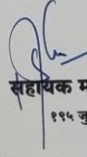 सहायक म
१९५ जु